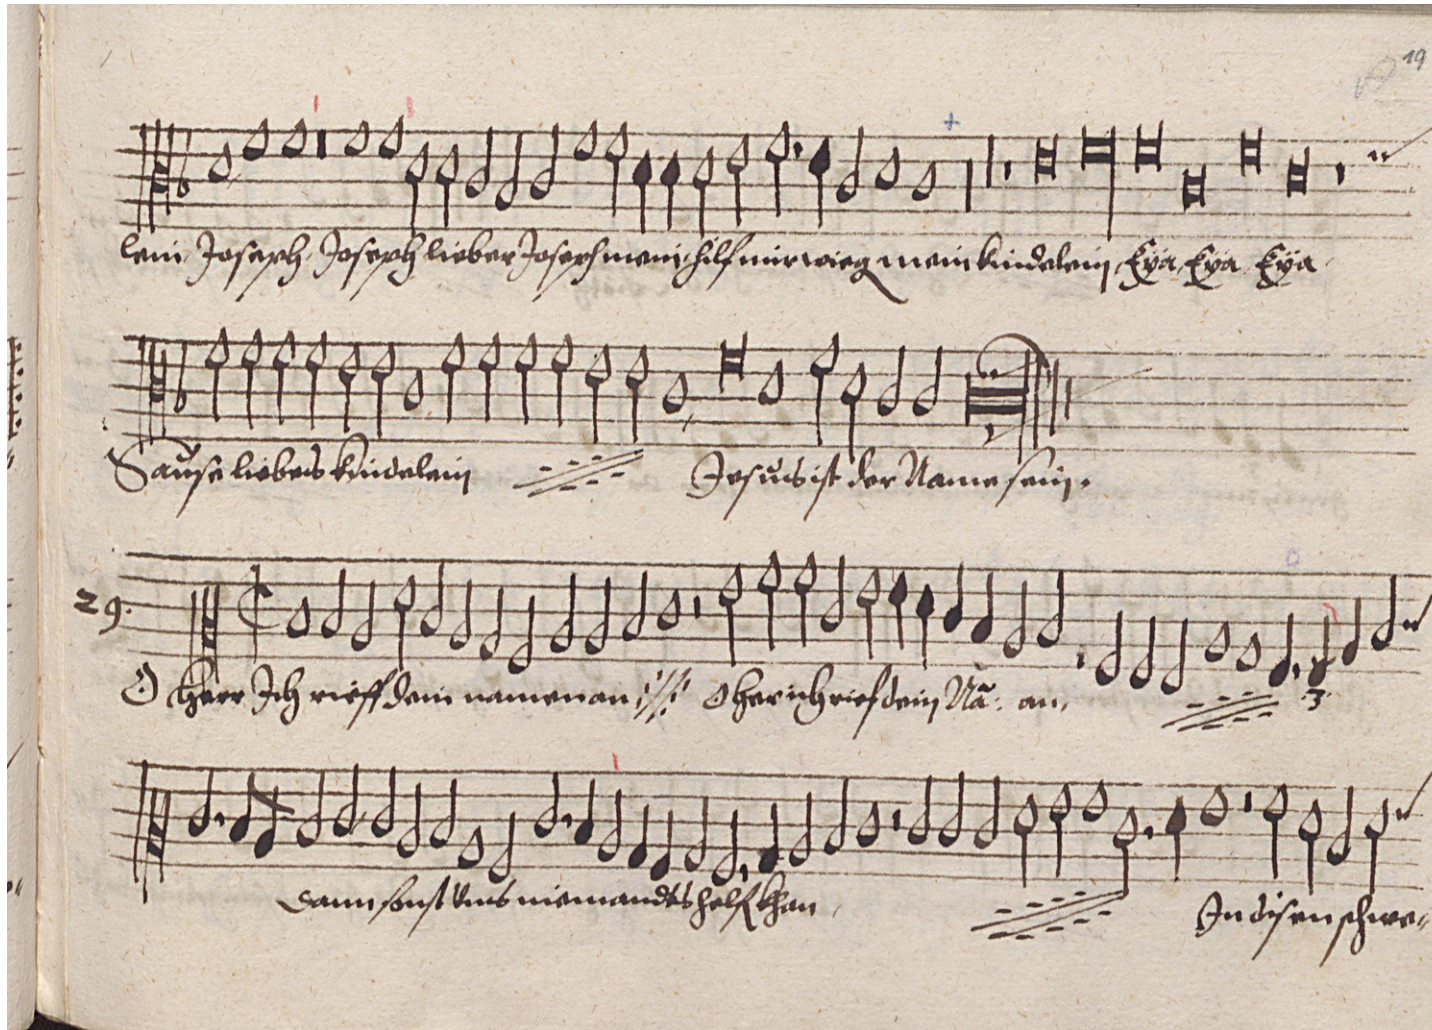 19
lein Joseph, Joseph lieber Joseph mein, hilf mir wieg mein kindelein, Eÿa, Eÿa, Eÿa
Sause liebes kindelein Jesus ist der Name sein.
29.
O herr Ich rieff dein namen an O her ich rief dein Nā: an, 3
dann sonst vns niemandts helf khan, In disen schwe-